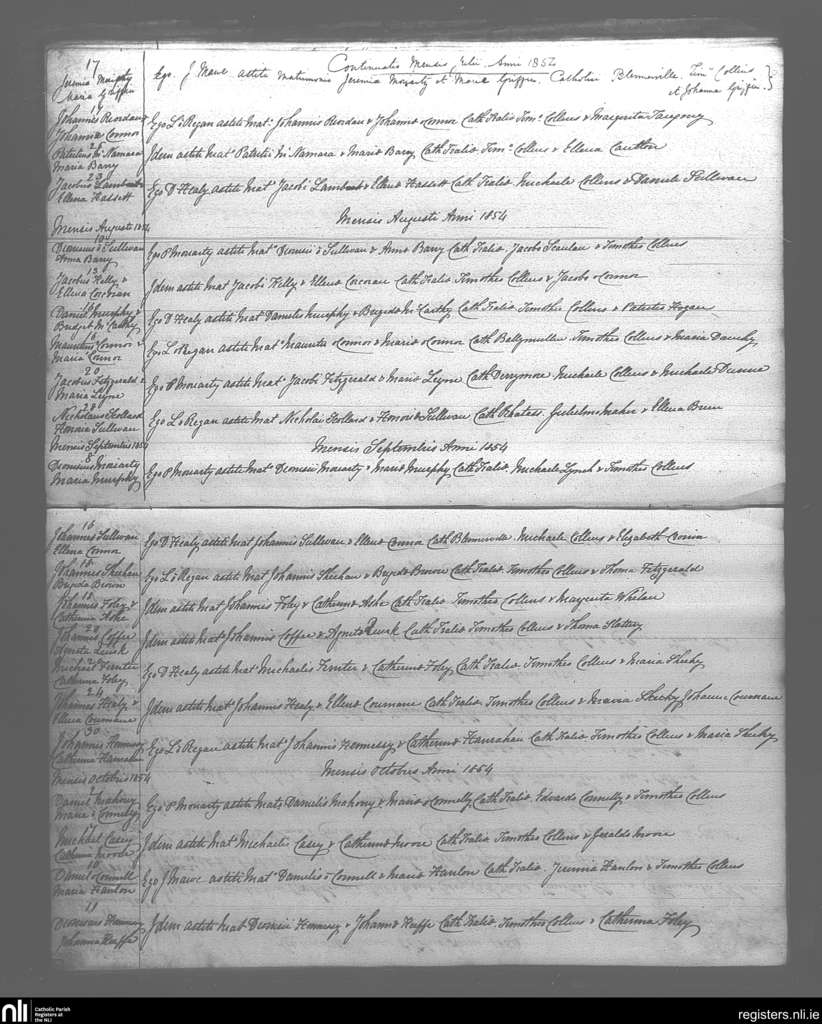 Continuatio Mensis Julii Anni 1854
17
Jeremia Moriarty
Maria Griffin
Ego J Mawe astite matrimonio Jeremia Moriarty et Maria Griffin. Catholici Blennerville. Timo Collins
et Johanna Griffin.
19
Johannes Reordan &
Johanna Connor
Ego L. O Regan astite Mato Johannis Reordan & Johanna oConnor Cath Tralia Timo Collins & Margarita
Patritius McNamara
Maria Barry
Idem astite Mato Patritii McNamara & Maria Barry Cath Tralia Timo Collins & Ellena
23
Jacobus Lambert
Ellena Hassett
Ego D Healy astite Mato Jacobi Lambert & Ellena Hassett Cath Tralia Michaele Collins & Daniele Sullivan
Mensis Augusti Anni 1854
Mensis Augusti 1854
10
Dionisius o Sullivan
Anna Barry
Ego P Moriarty astite Mato Dionisii o Sullivan & Anna Barry Cath Tralia Jacobo Scanlan & Timotheo Collins
15
Jacobus Kelly &
Ellena Corcoran
Idem astite Mat Jacobi Kelly & Ellena Corcoran Cath Tralia Timotheo Collins & Jacobo oConnor
Daniel Murphy &
Bridget McCarthy
Ego D Healy astite Mato Danielis Murphy & Brigida McCarthy Cath Tralia Timotheo Collins & Patritio Hogan
Mauritius Connor &
Maria Connor
Ego L. oRegan astite Mato Mauritii oConnor & Maria oConnor Cath Ballymullen Timotheo Collins & Maria
20
Jacobus Fitzgerald &
Maria Leyne
Ego P Moriarty astite Mato Jacobi Fitzgerald & Maria Leyne Cath Derrymore Michaele Collins & Michaele
28
Nicholaus Holland
Honoria Sullivan
Ego L. o Regan astite Mat Nicholai Holland & Honora Sullivan Cath Gulielmo Maher & Ellena
Mensis Septembris Anni 1854
Mensis Septembris 1854
8
Dionisius Moriarty
Maria Murphy
Ego P Moriarty astite Mato Dionisii Moriarty & Maria Murphy Cath Tralia Michaele Lynch & Timotheo Collins
16
Johannes Sullivan
Ellena Connor
Ego D Healy astite Mat Johannis Sullivan & Ellena Connor Cath Blennerville Michaele Collins & Elizabeth Cronin
18
Johannes Sheehan
Brigida Brown
Ego L. o Regan astite Mat Johannis Sheehan & Brigida Brown Cath Tralia Timotheo Collins & Thoma Fitzgerald
18
Johannes Foley &
Catherina Ashe
Idem astite Mato Johannis Foley & Catherina Ashe Cath Tralia Timotheo Collins & Margarita Whelan
20
Johannes Coffee
Agneta Quirk
Idem astite Mato Johannis Coffee & Agneta Quirk Cath Tralia Timotheo Collins & Thoma Slattery
Catherina Foley
Ego D Healy astite Mato Michaelis & Catherina Foley Cath Tralia Timotheo Collins & Maria Sheehy
24
Johannes Healy &
Ellena Cournane
Idem astite Mato Johannis Healy & Ellena Cournane Cath Tralia Timotheo Collins & Maria Sheehy Johanna Cournane
30
Johannes Hennessy
Catherina Hanrahan
Ego L. o Regan astite Mato Johannis Hennessy & Catherina Hanrahan Cath Tralia Timotheo Collins & Maria Sheehy
Mensis Octobris Anni 1854
Mensis Octobris 1854
Daniel Mahony
Maria o Connelly
Ego P Moriarty astite Mato Danielis Mahony & Maria oConnelly Cath Tralia Edvardo Connelly & Timotheo Collins
Michael Casey
Catherina Moore
Idem astite Mato Michaelis Casey & Catherina Moore Cath Tralia Timotheo Collins & Geraldo Moore
10
Daniel oConnell
Maria Hanlon
Ego J Mawe astite Mato Danielis o Connell & Maria Hanlon Cath Tralia. Jeremia Hanlon & Timotheo Collins
11
Dionisius Hennessy
Johanna Keeffe
Idem astite Mato Dionisii Hennessy & Johanna Keeffe Cath Tralia. Timotheo Collins & Catherina Foley
nli
Catholic Parish
Registers at
the NLI
registers.nli.ie